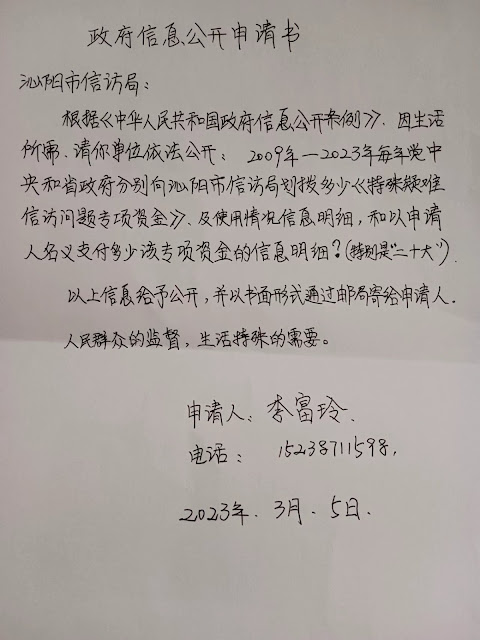 政府信息公开申请书
沁阳市信访局：
根据《中华人民共和国政府信息公开条例》、因生活
所需、请你单位依法公开：2009年—2023年每年党中
央和省政府分别向沁阳市信访局划拨多少《特殊疑难
信访问题专项资金》、及使用情况信息明细，和以申请
人名义支付多少该专项资金的信息明细？（特别是“二十大”）.
以上信息给予公开，并以书面形式通过邮局寄给申请人.
人民群众的监督，生活特殊的需要。
申请人：李富玲.
电话：15238711598,
2023年.3月.5日.